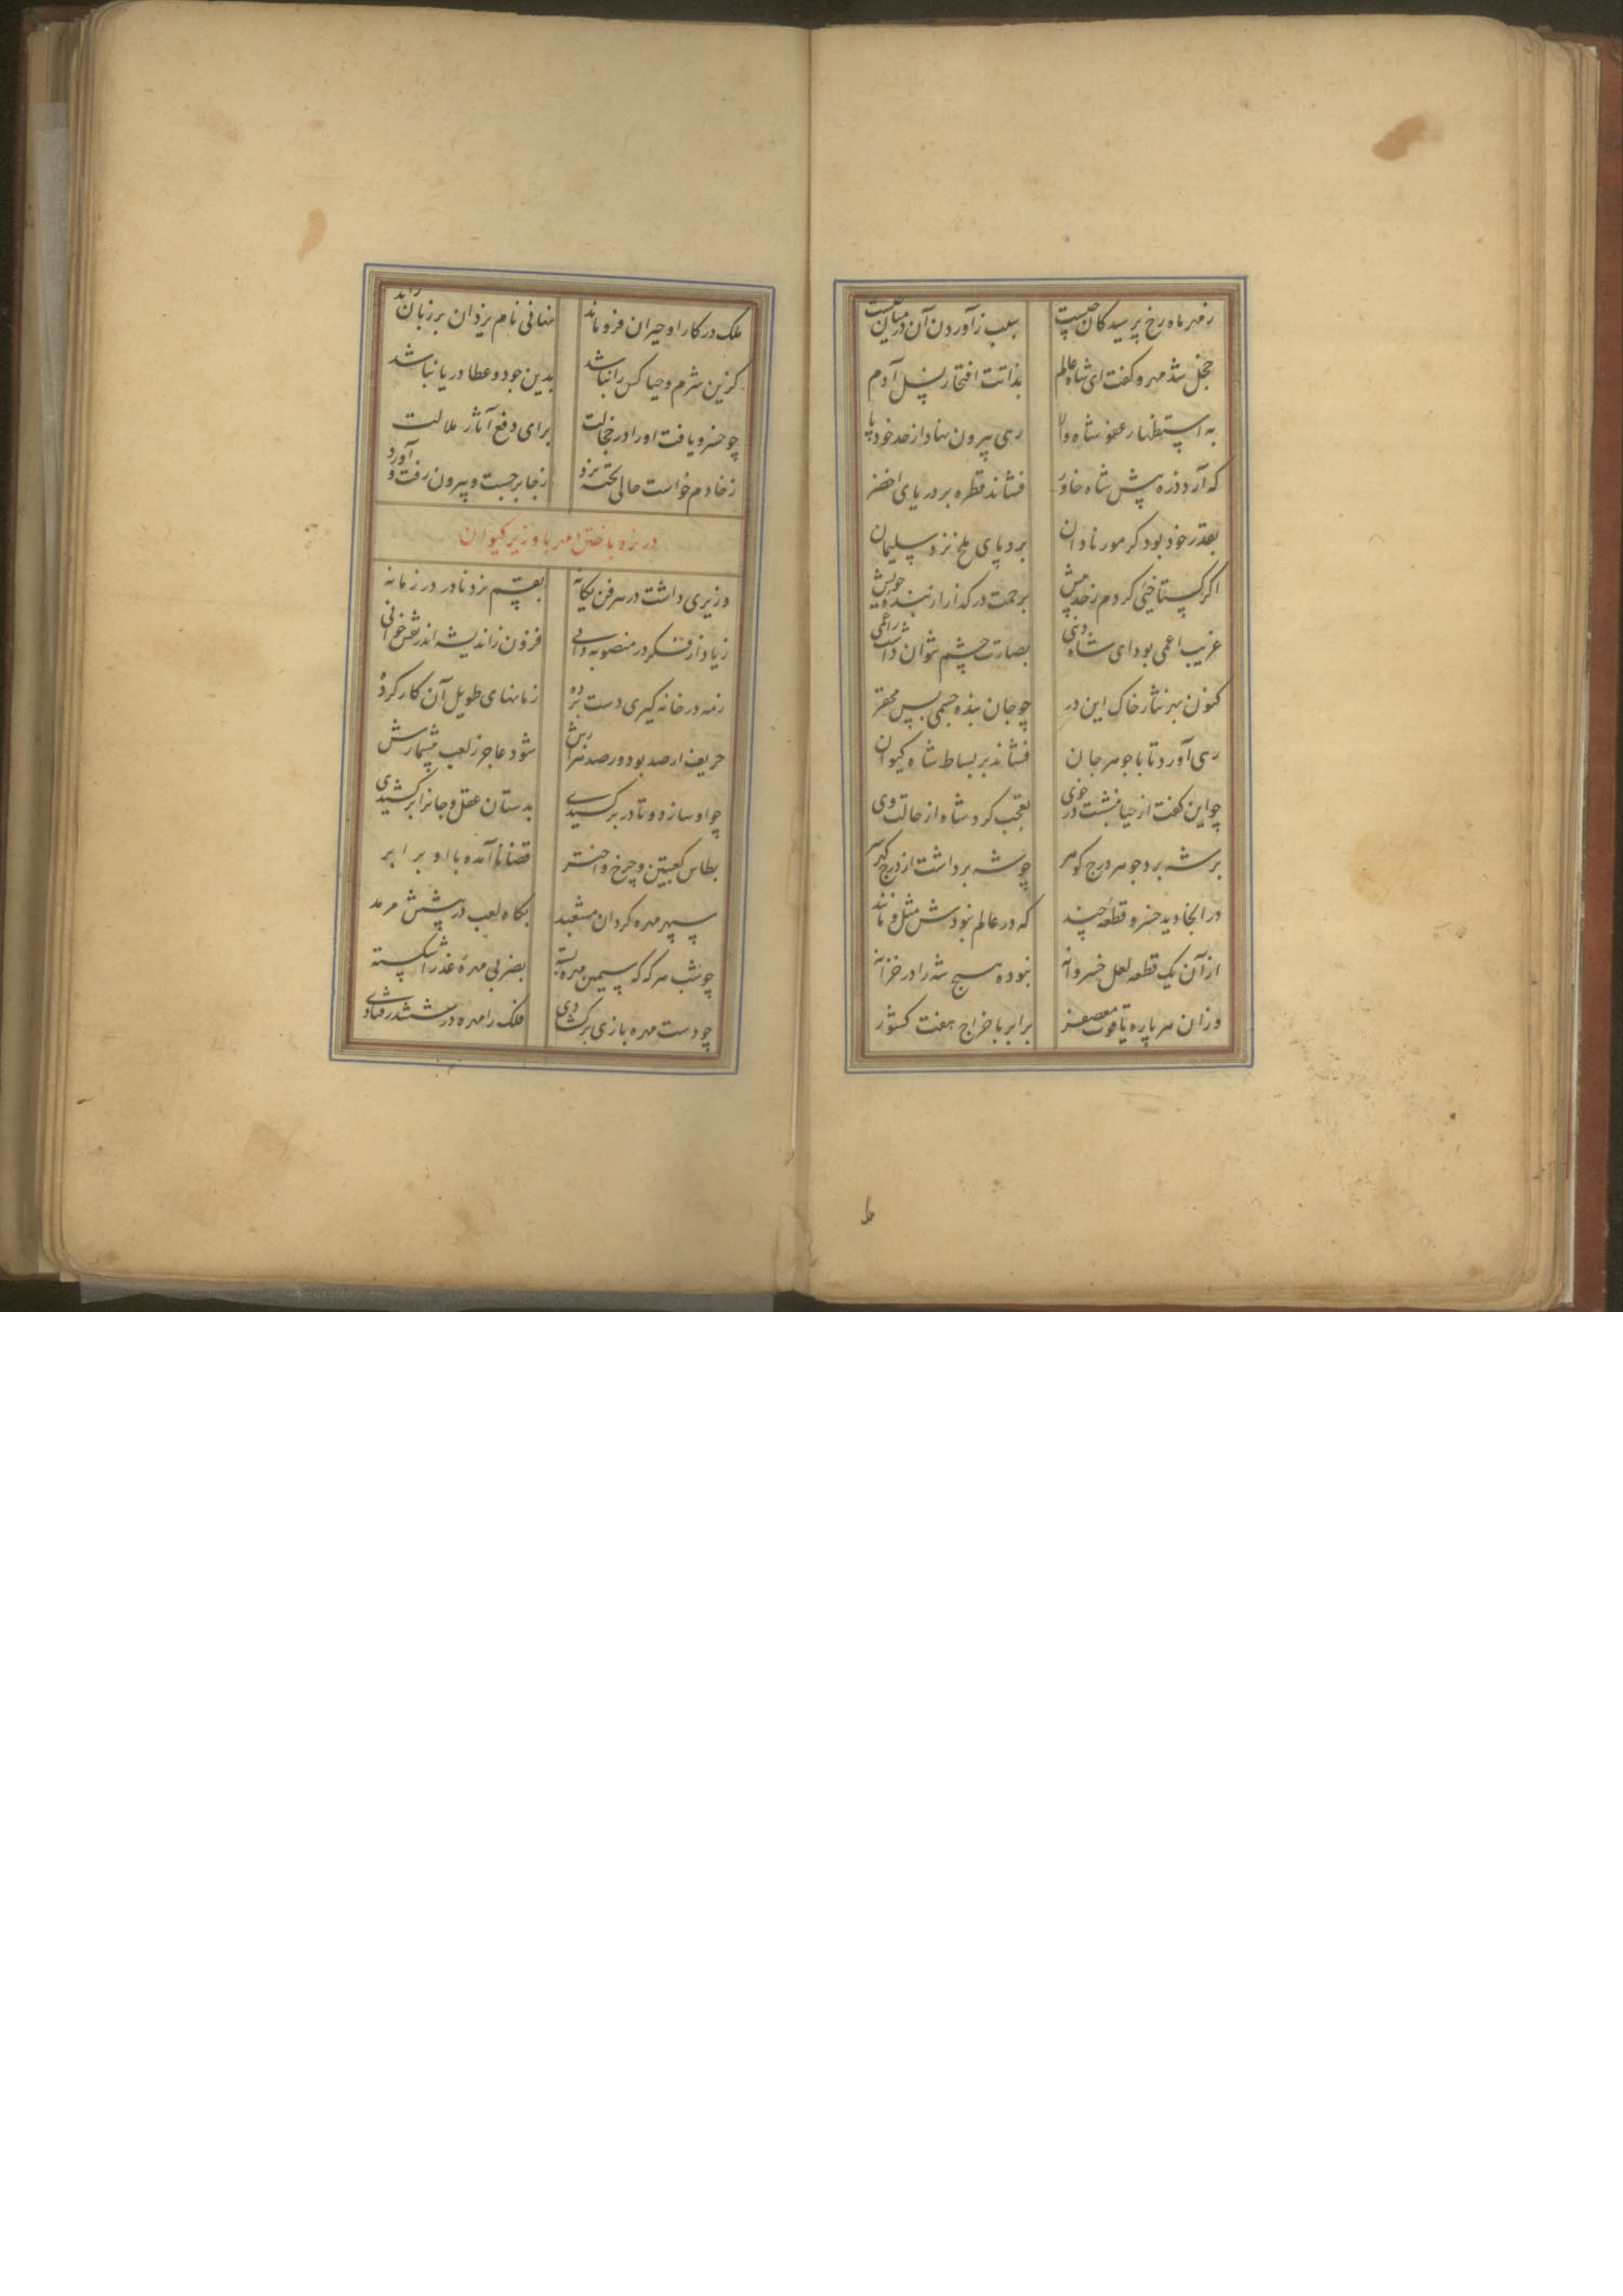 ز مهر ماه رخ پرسید کان چیست سبب ز آوردن آن در میان چیست
خجل شد مهر و گفت ای شاه عالم بذاتت افتخار نسل آدم
به استظهار عفو شاه والا رهی بیرون نهاد از حد خود پا
که آرد ذره پیش شاه خاور فشاند قطره بر دریای اخضر
بقدر خود بود گر مور نادان برد پای ملخ نزد سلیمان
اگر گستاخیی کردم ز حد بیش برحمت در گذار از بنده خویش
غریب اعمی بود ای شاه دنیی بصارت چشم نتوان داشت ز اعمی
کنون بهر نثار خاک این در چو جان بنده جسمی بس محقر
رهی آورد تا با جوهر جان فشاند بر بساط شاه کیوان
چو این گفت از حیا بنشست در خوی تعجب کرد شاه از حالت وی
بر شه برد جوهر درج گوهر چو شه برداشت از درج گهر سر
در آنجا دید خسرو قطعه چند که در عالم نبودش مثل و مانند
از آن یک قطعه لعل خسروانه نبوده هیچ شه را در خزانه
وزان هر پاره یاقوت معصفر برابر با خراج هفت کشور
ملک در کار او حیران فرو ماند نهانی نام یزدان بر زبان راند
کزین شرم و حیا کس را نباشد بدین جود و عطا دریا نباشد
چو خسرو یافت او را در خجالت برای دفع آثار ملالت
ز خادم خواست حالی تخته نرد ز جا برجست و بیرون رفت و آورد
در نرد باختن مهر با وزیر کیوان
وزیری داشت در هر فن یگانه بقسم نرد نادر در زمانه
زیاد از فکر در منصوبه دانی فزون ز اندیشه اندر نقش خوانی
ز مه در خانه گیری دست برده زمانهای طویل آن کار کرده
حریف ار صد بود ور صد هزارش شود عاجز ز لعب بیشمارش
چو او ساز دو تا در بر کشیدی بدستان عقل و جانرا بر کشیدی
بطاس کعبتین و چرخ و اختر قضا نا آمده با او برابر
سپهر مهره گردان مشعبد بگاه لعب در پیشش مرمد
چو شب هر گه که سیمین مهره بسته بضربی مهره عذرا شکسته
چو دست مهره بازی بر گشادی فلک را مهره در ششدر فتادی